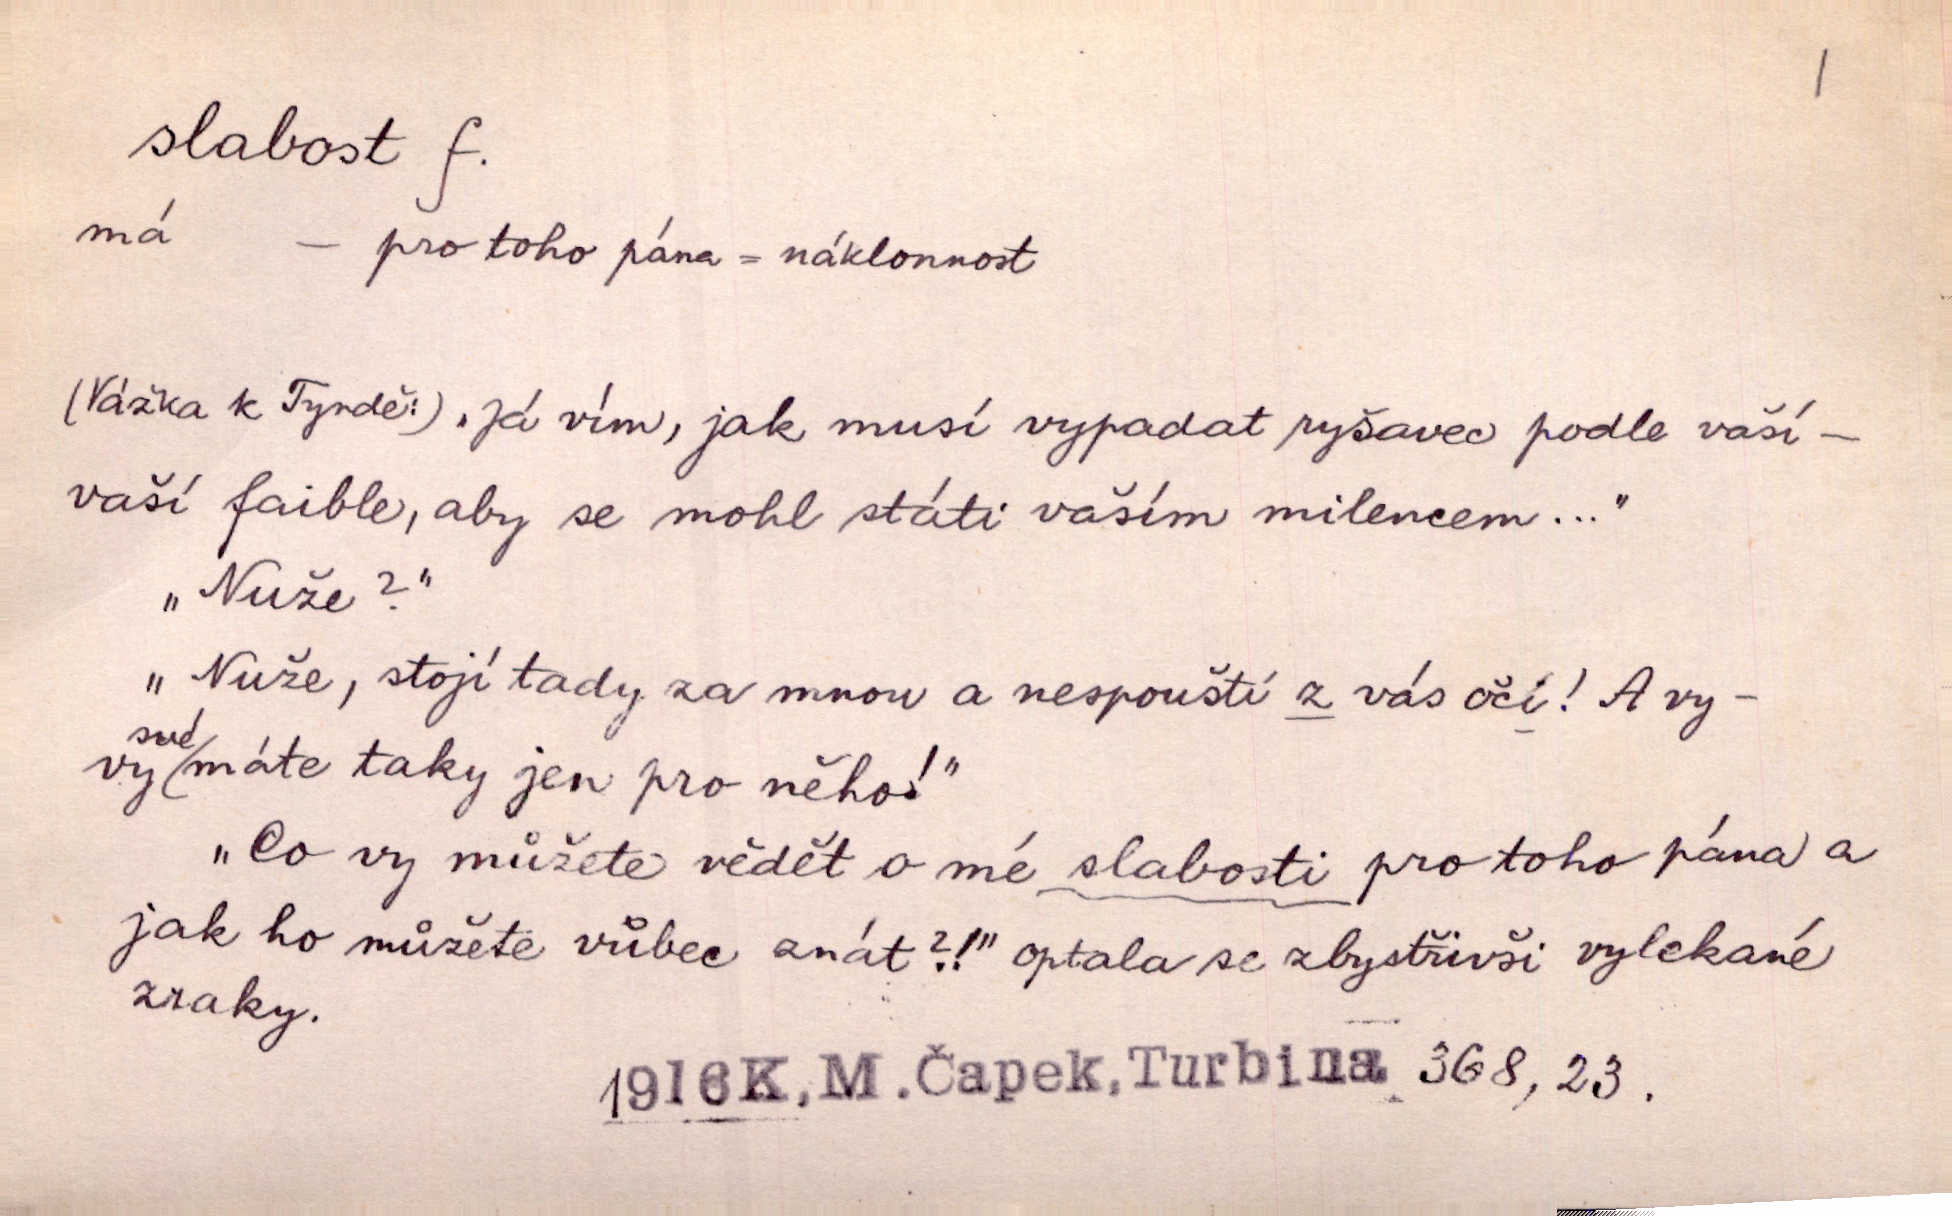 1
slabost f.
má — pro toho pána = náklonnost
(Vážka k Tyndě:) „Já vím, jak musí vypadat ryšavec podle vaší —
vaší faible, aby se mohl státi vaším milencem..."
„Nuže?"
„Nuže, stojí tady za mnou a nespouští z vás očí! A vy –
své
vy máte taky jen pro něho!"
„Co vy můžete vědět o mé slabosti pro toho pána a
jak ho můžete vůbec znát?!" optala se zbystřivši vylekané
zraky.
1916 K.M.Čapek,Turbina 368, 23.